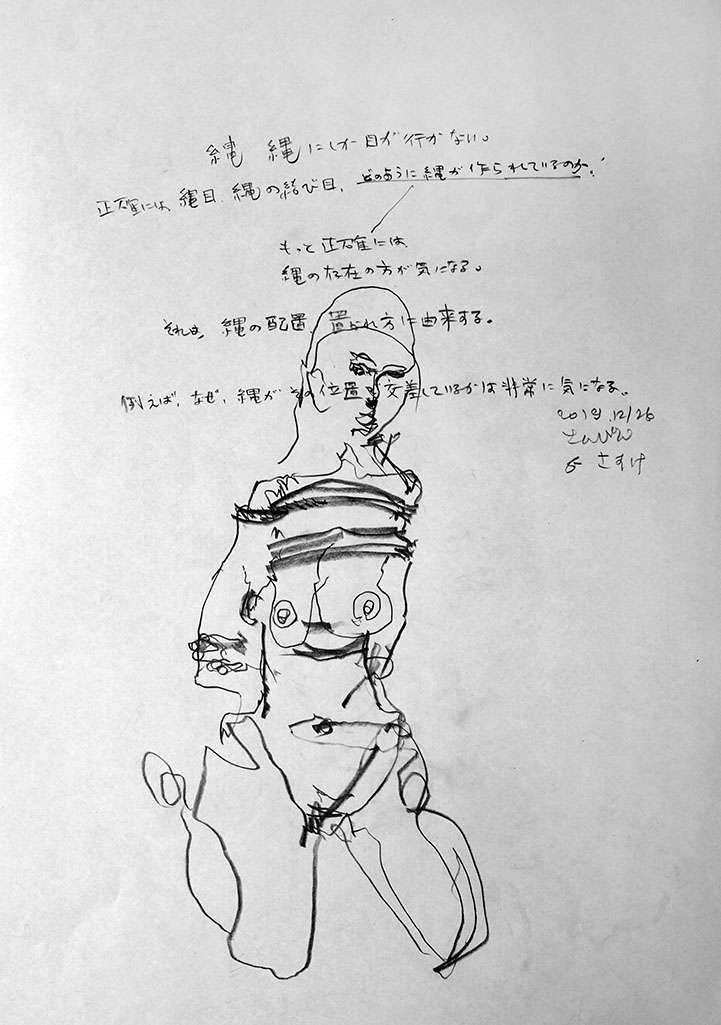 縄 縄にしか目が行かない。
正確には、縄目、縄の結び目、どのように縄が作られているのか!
もっと正確には、
縄の存在の方が気になる。
それは、縄の配置、置かれ方に由来する。
例えば、なぜ、縄がその位置で交差しているかは非常に気になる。
2018.12/26
さすけ